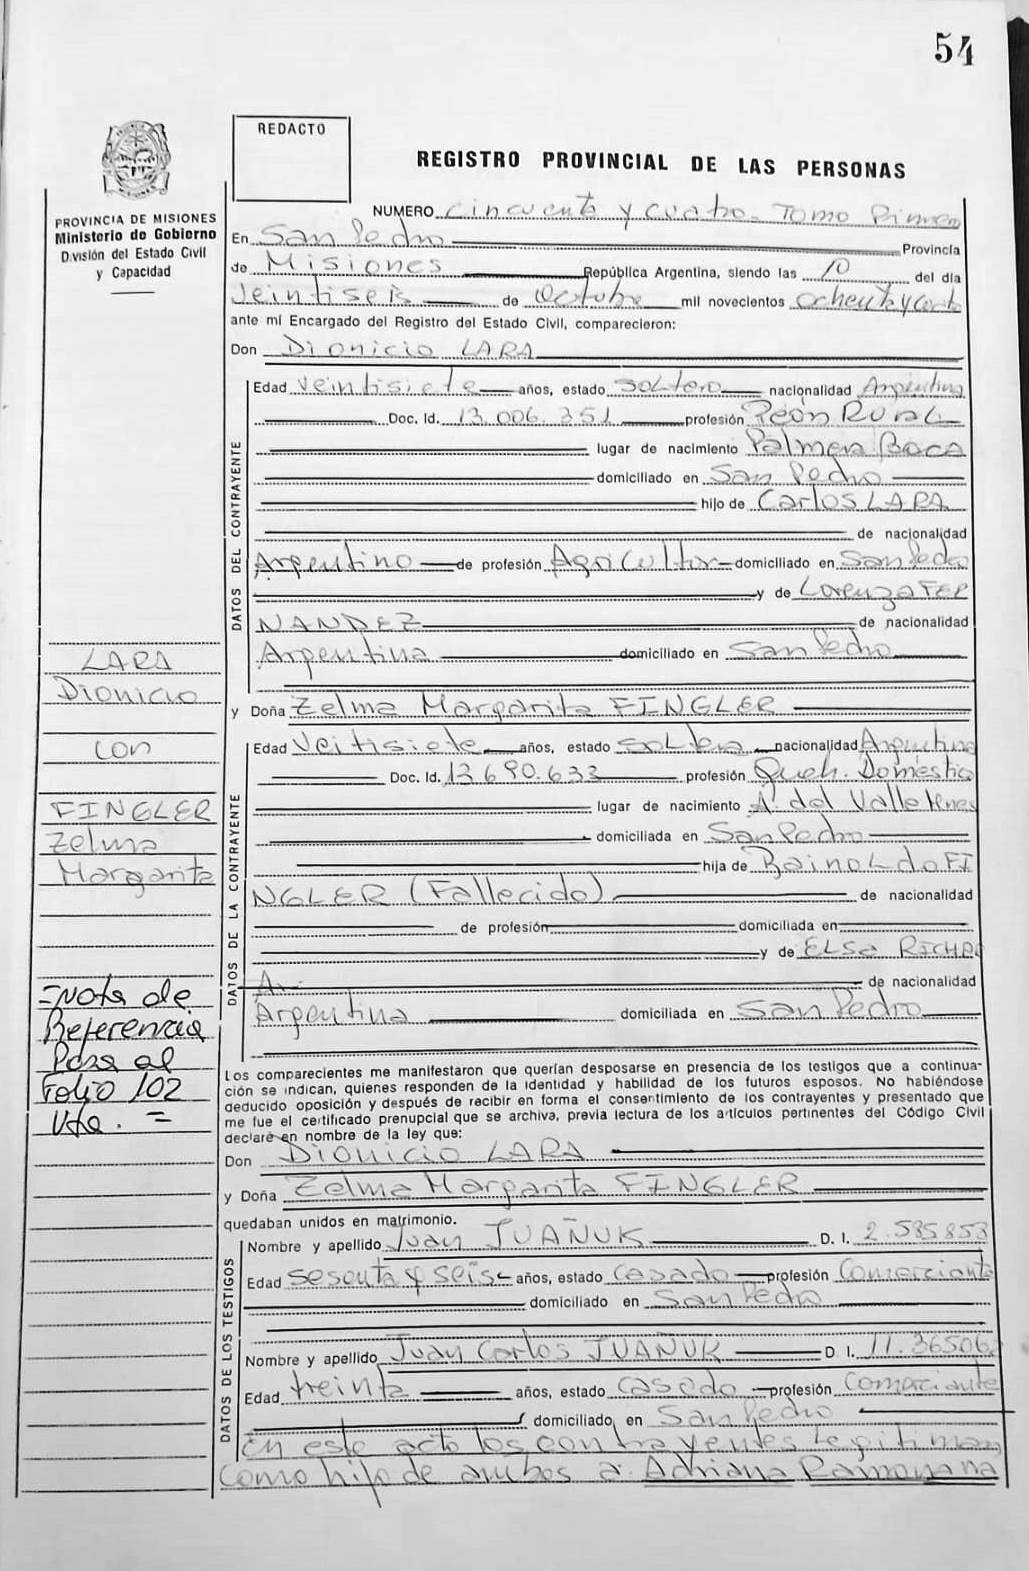 54
REDACTO
REGISTRO PROVINCIAL DE LAS PERSONAS
PROVINCIA DE MISIONES
Ministerio de Gobierno
División del Estado Civil
y Capacidad
NUMERO Cincuenta y cuatro - Tomo Primero
En San Pedro Provincia
de Misiones República Argentina, siendo las 10 del día
Veintiseis de Octubre mil novecientos ochenta y
ante mí Encargado del Registro del Estado Civil, comparecieron:
Don Dionicio LARA
DATOS DEL CONTRAYENTE
Edad Veintisiete años, estado Soltero nacionalidad Argentina
Doc. Id. 13.006.351 profesión Peón Rural
lugar de nacimiento Palmera Boca
domiciliado en San Pedro
hijo de Carlos LARA
de nacionalidad
Argentino de profesión Agricultor domiciliado en San Pedro
y de Lorenza FER
NANDEZ de nacionalidad
Argentina domiciliado en San Pedro
y Doña Zelma Margarita FINGLER
DATOS DE LA CONTRAYENTE
Edad Veitisiete años, estado Soltera nacionalidad Argentina
Doc. Id. 13.690.633 profesión Queh. Doméstico
lugar de nacimiento A. del Valle
domiciliada en San Pedro
hija de Rainoldo FI
NGLER (Fallecido) de nacionalidad
de profesión domiciliada en
y de ELSA
A. de nacionalidad
Argentina domiciliada en San Pedro
Los comparecientes me manifestaron que querían desposarse en presencia de los testigos que a continua-
ción se indican, quienes responden de la identidad y habilidad de los futuros esposos. No habiéndose
deducido oposición y después de recibir en forma el consentimiento de los contrayentes y presentado que
me fue el certificado prenupcial que se archiva, previa lectura de los artículos pertinentes del Código Civil
declaré en nombre de la ley que:
Don Dionicio LARA
y Doña Zelma Margarita FINGLER
quedaban unidos en matrimonio.
DATOS DE LOS TESTIGOS
Nombre y apellido Juan JUAÑUK D. I. 2.585853
Edad Sesenta y seis años, estado Casado profesión Comerciante
domiciliado en San Pedro
Nombre y apellido Juan Carlos JUAÑUK D I. 11.36506
Edad treinta años, estado Casado profesión Comerciante
domiciliado en San Pedro
En este acto los contrayentes legitiman
como hijo de ambos a: Adriana Ramona
LARA
Dionicio
con
FINGLER
Zelma
Margarita
=Nota de
Referencia
Pasa al
Folio 102
Vta. =